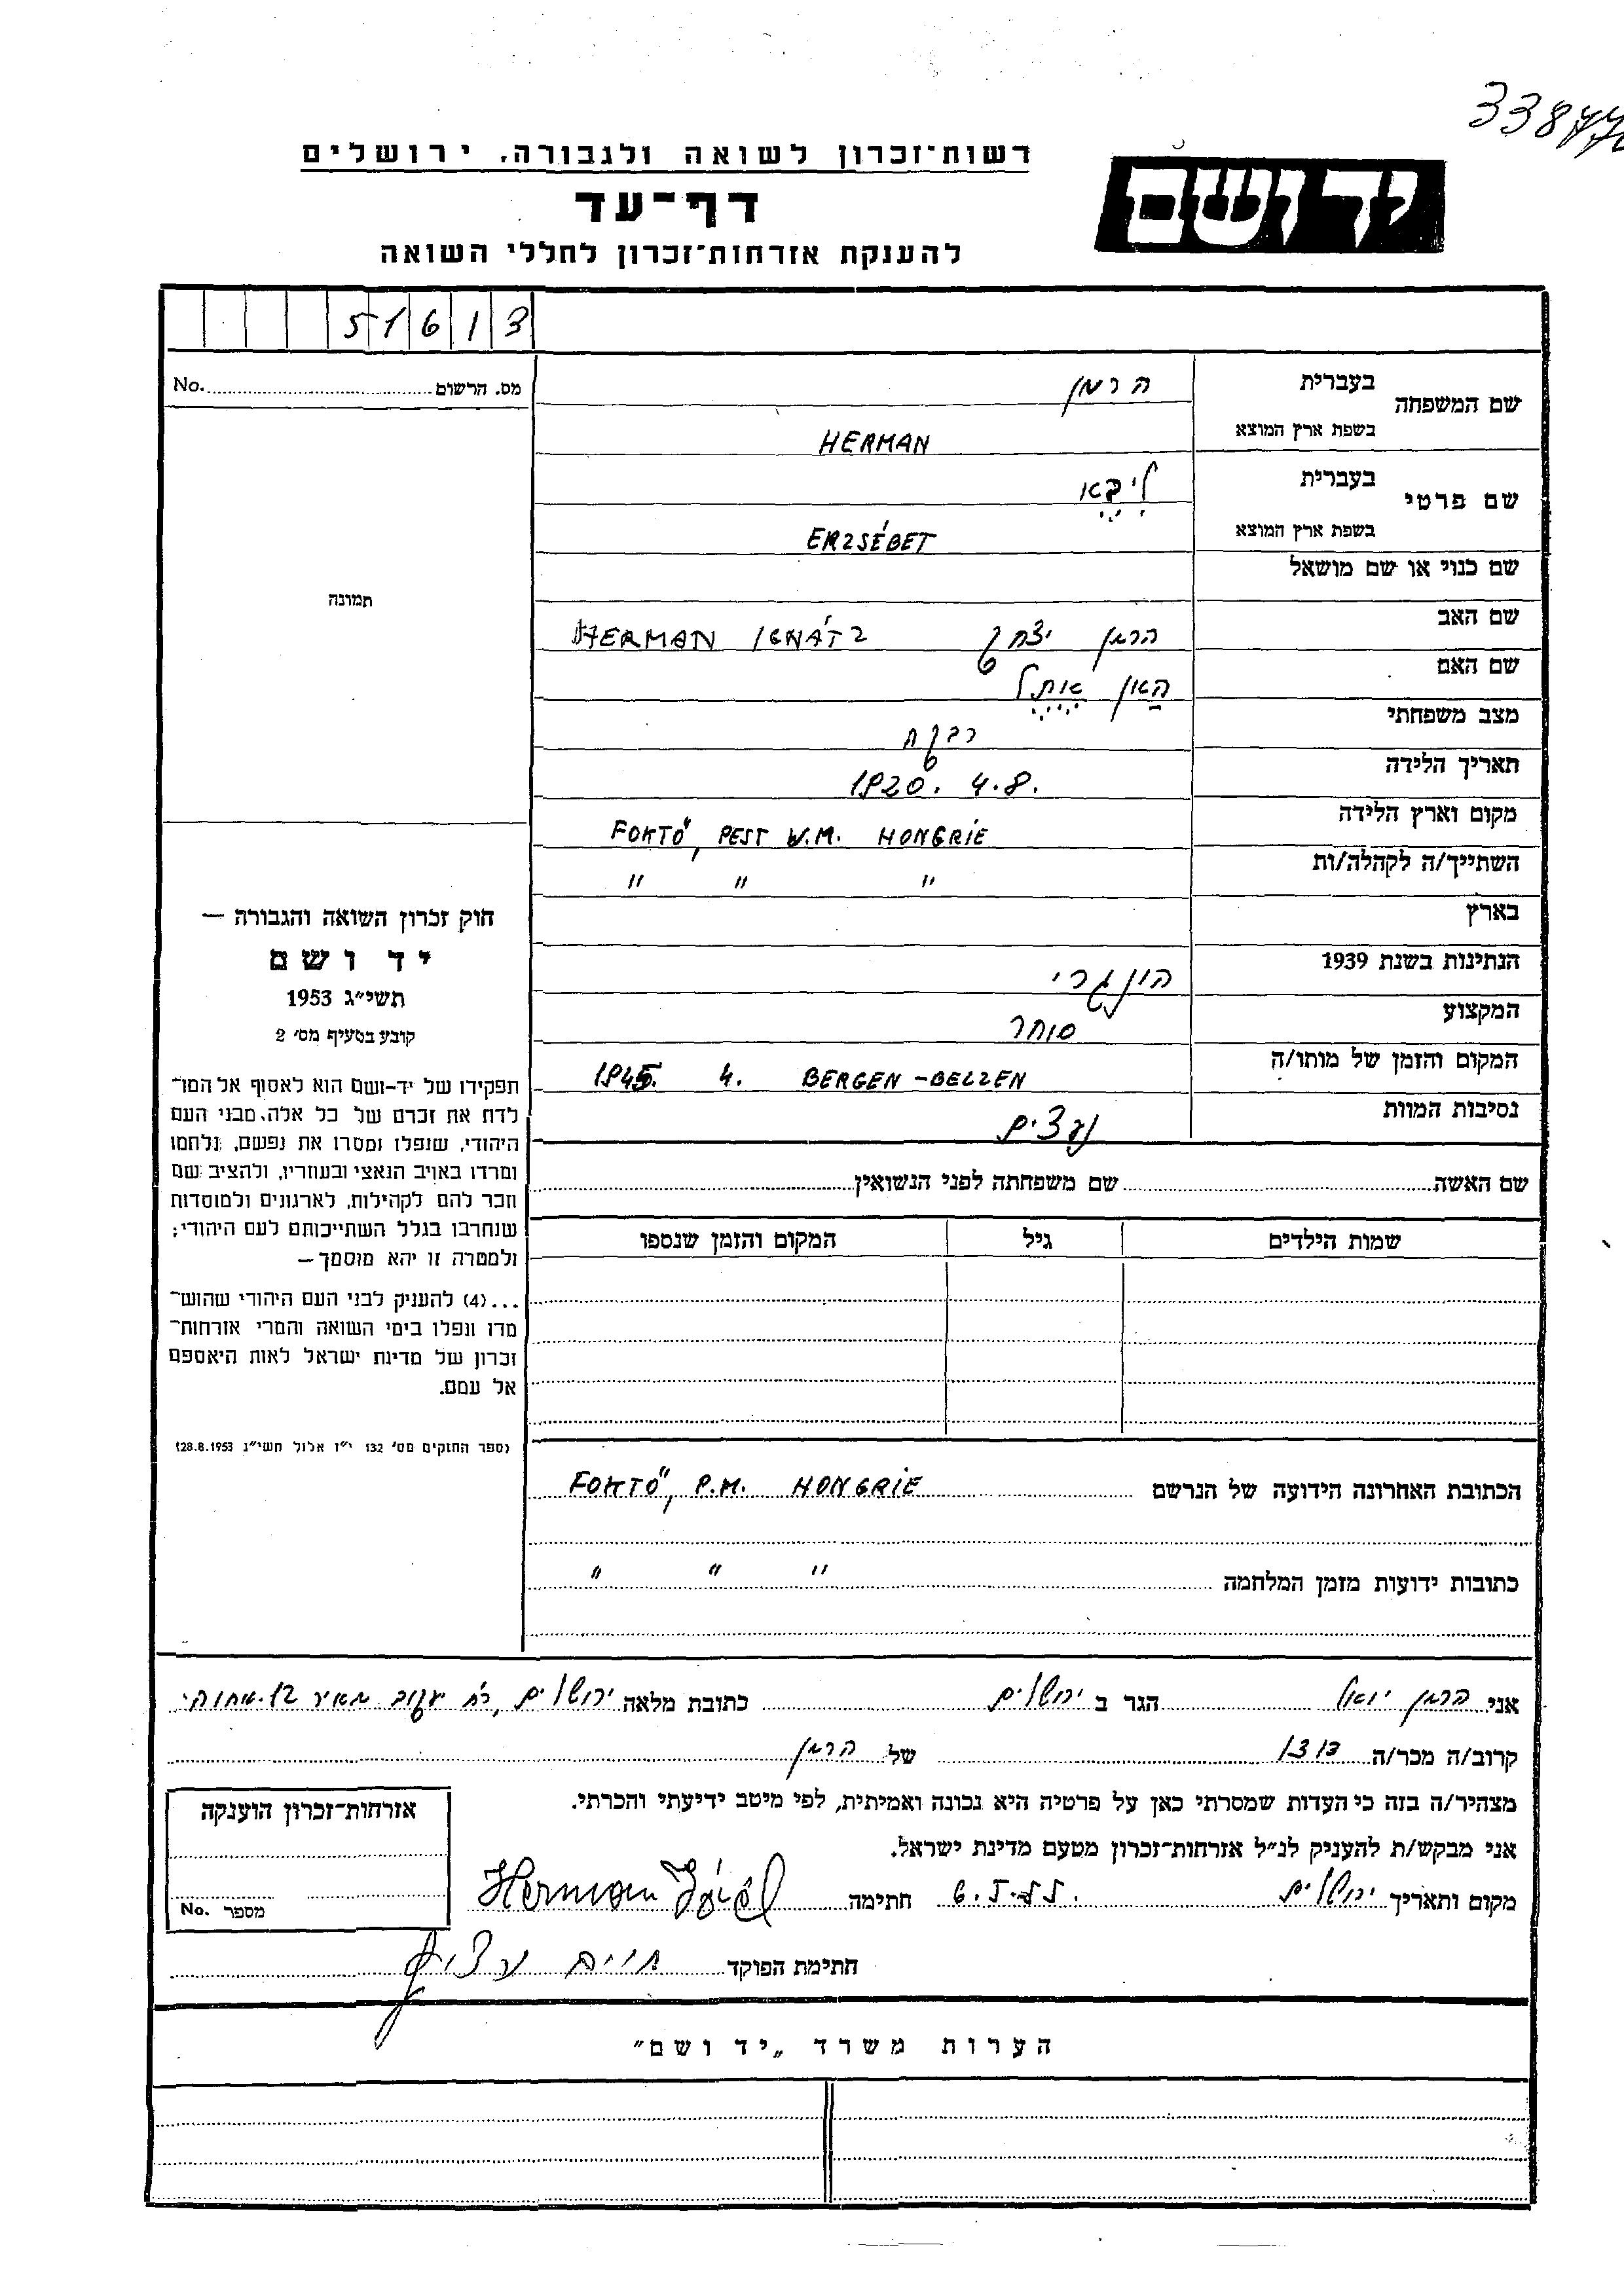 33877
רשות־זכרון לשואה ולגבורה, ירושלים
יד ושם
דף־עד
להענקת אזרחות־זכרון לחללי השואה
51613
מס. הרשום No.
שם המשפחה בעברית הרמן
בשפת ארץ המוצא HERMAN
שם פרטי בעברית ליבא
בשפת ארץ המוצא ERZSÉBET
שם כנוי או שם מושאל
תמונה
שם האב הרמן יצחק HERMAN IGNÁTZ
שם האם
מצב משפחתי רבקה
תאריך הלידה 1920. 4.8.
מקום וארץ הלידה FOKTŐ, PEST V.M. HONGRIE
השתייך/ה לקהלה/ות " " "
בארץ
הנתינות בשנת 1939 הונגרי
המקצוע סוחר
המקום והזמן של מותו/ה 1945. 4. BERGEN-BELZEN
נסיבות המוות
חוק זכרון השואה והגבורה —
יד ושם
תשי״ג 1953
קובע בסעיף מס׳ 2
תפקידו של יד-ושם הוא לאסוף אל המו־
לדת את זכרם של כל אלה, מבני העם
היהודי, שנפלו ומסרו את נפשם, נלחמו
ומרדו באויב הנאצי ובעוזריו, ולהציב שם
וזכר להם לקהילות, לארגונים ולמוסדות
שנחרבו בגלל השתייכותם לעם היהודי;
ולמטרה זו יהא מוסמך —
...(4) להעניק לבני העם היהודי שהוש־
מדו ונפלו בימי השואה והמרי אזרחות־
זכרון של מדינת ישראל לאות היאספם
אל עמם.
(ספר החוקים מס׳ 132 י״ז אלול תשי״ג 28.8.1953)
שם האשה שם משפחתה לפני הנשואין
שמות הילדים גיל המקום והזמן שנספו
הכתובת האחרונה הידועה של הנרשם FOKTŐ, P.M. HONGRIE
כתובות ידועות מזמן המלחמה " " "
אני הרמן יואל הגר ב ירושלים כתובת מלאה ירושלים, רח׳ יעקב מאיר 12
קרוב/ה מכר/ה דודו של הרמן
מצהיר/ה בזה כי העדות שמסרתי כאן על פרטיה היא נכונה ואמיתית, לפי מיטב ידיעתי והכרתי.
אני מבקש/ת להעניק לנ״ל אזרחות־זכרון מטעם מדינת ישראל.
מקום ותאריך ירושלים חתימה Herman Jóél
חתימת הפוקד חיים
אזרחות־זכרון הוענקה
מספר No.
הערות משרד „יד ושם”